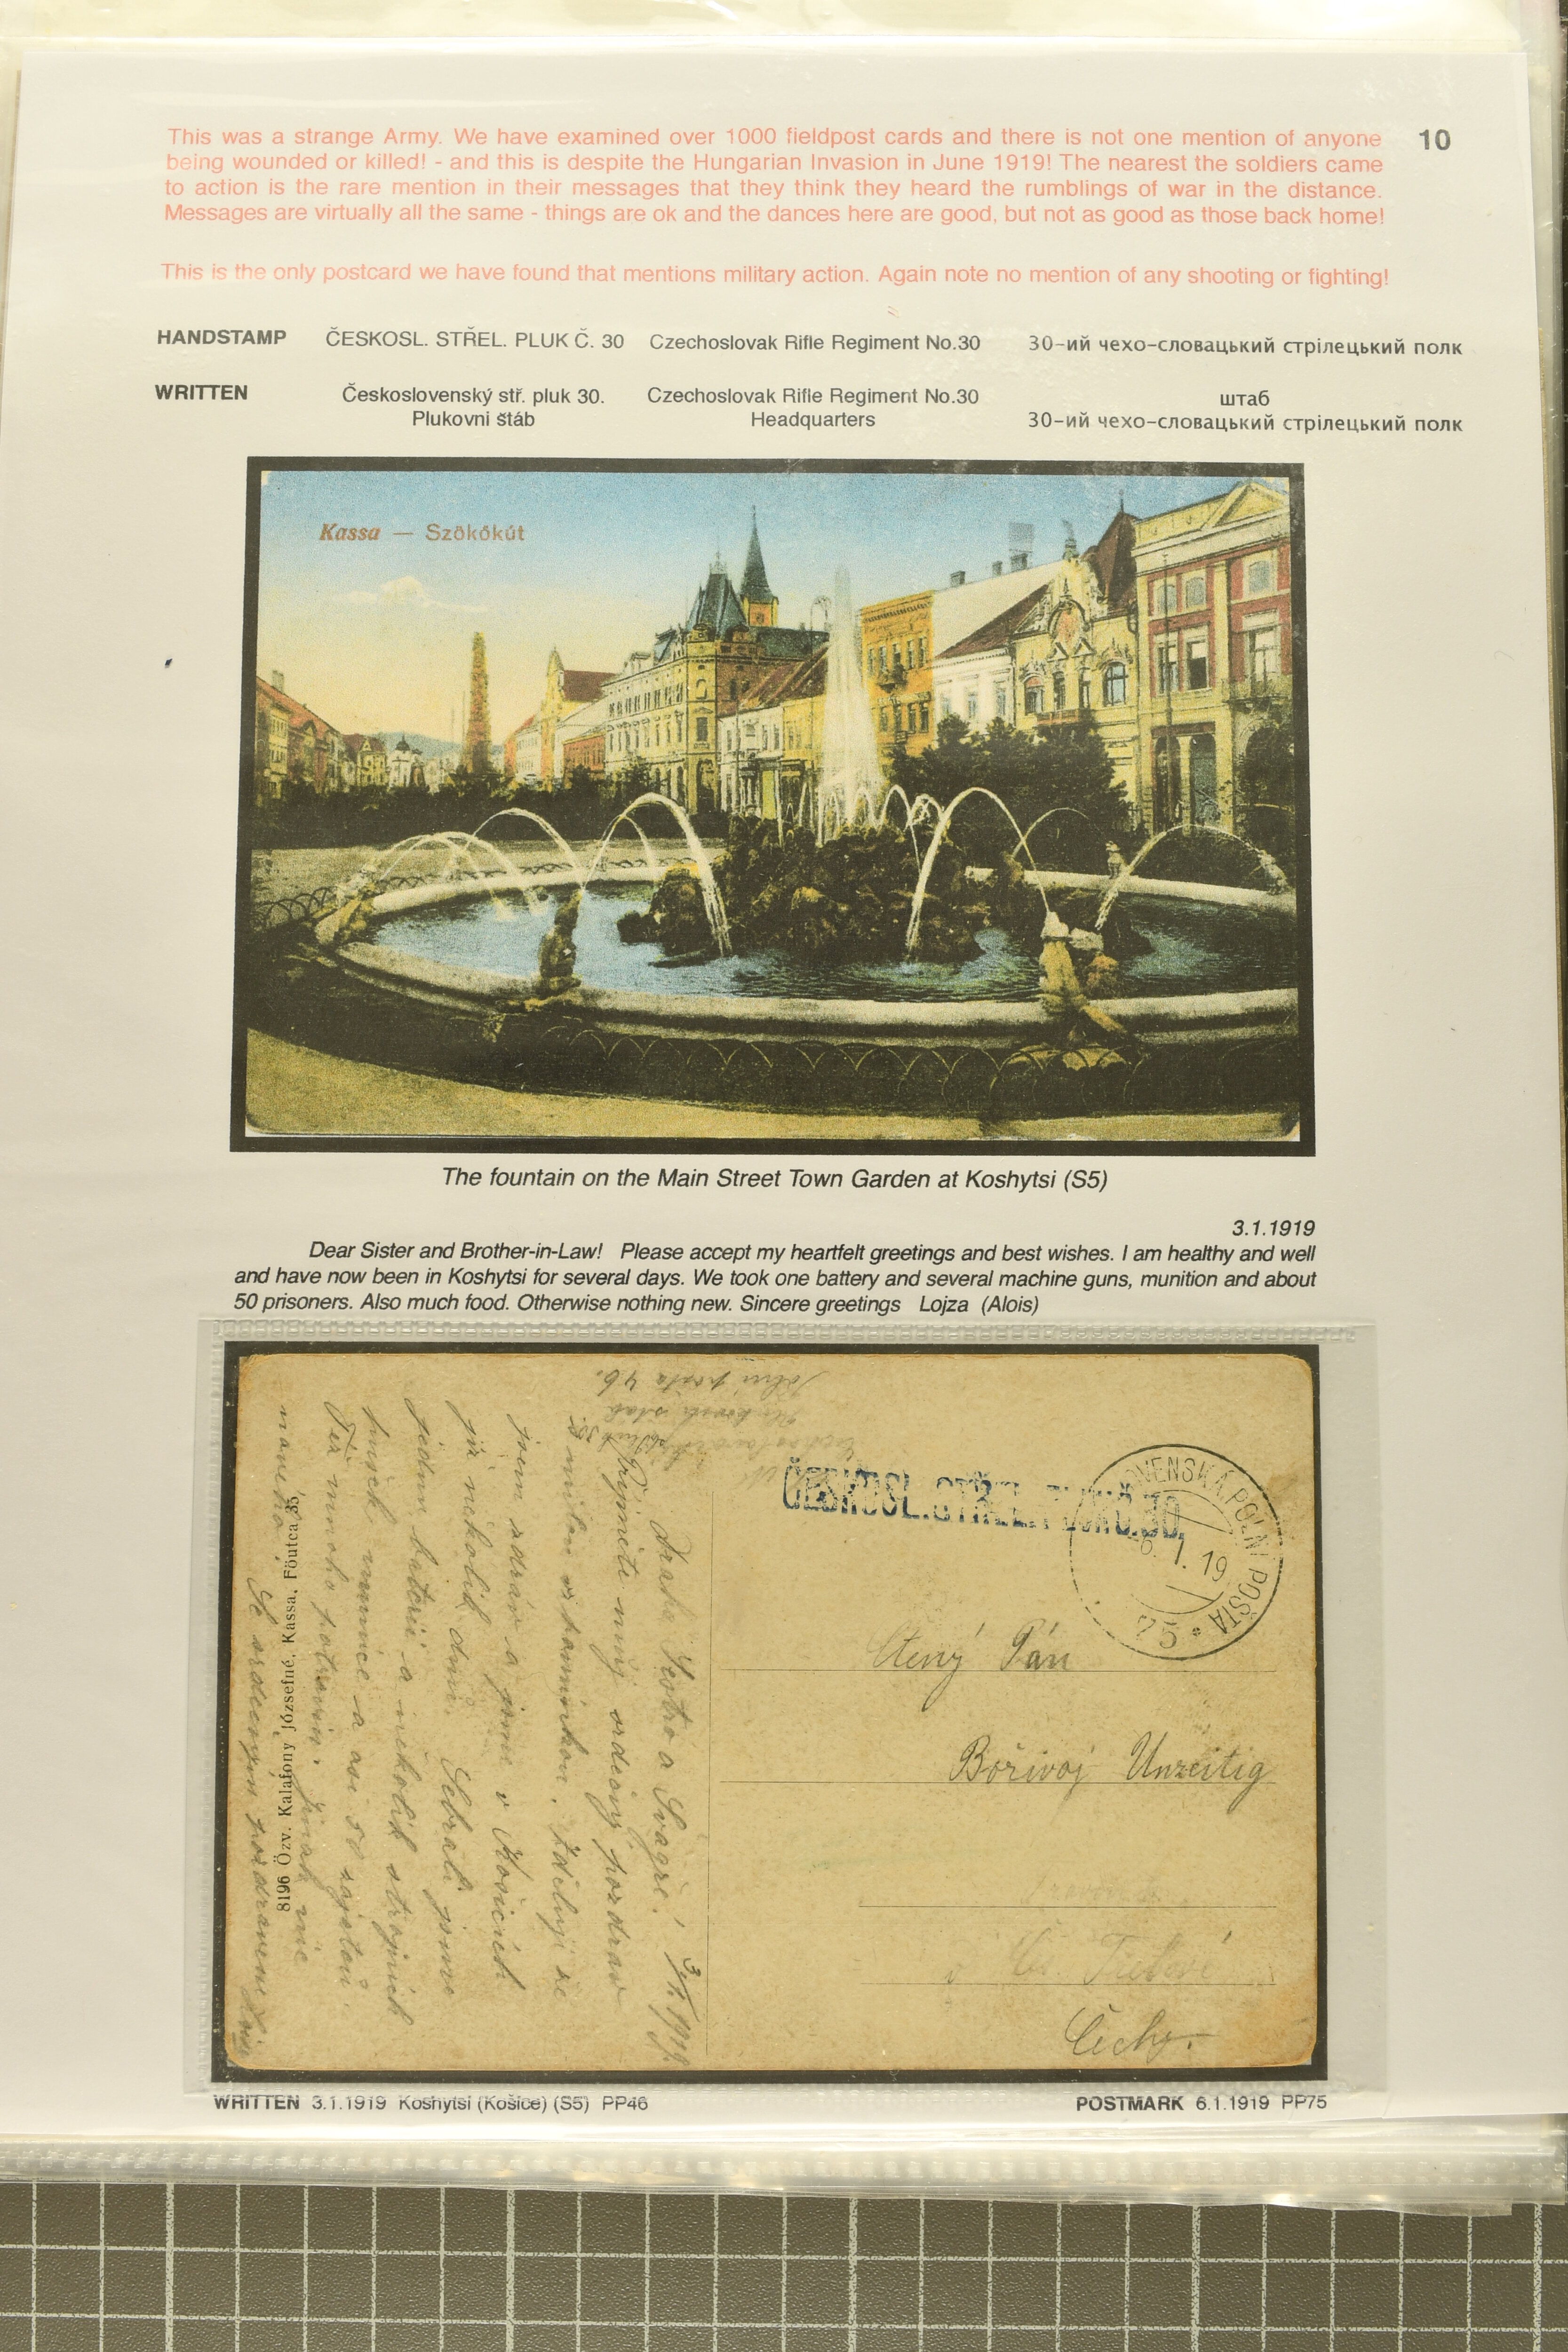 This was a strange Army. We have examined over 1000 fieldpost cards and there is not one mention of anyone
being wounded or killed! - and this is despite the Hungarian Invasion in June 1919! The nearest the soldiers came
to action is the rare mention in their messages that they think they heard the rumblings of war in the distance.
Messages are virtually all the same - things are ok and the dances here are good, but not as good as those back home!
10
This is the only postcard we have found that mentions military action. Again note no mention of any shooting or fighting!
HANDSTAMP ČESKOSL. STŘEL. PLUK Č. 30 Czechoslovak Rifle Regiment No.30 30-ий чехо-словацький стрілецький полк
WRITTEN Československý stř. pluk 30. Czechoslovak Rifle Regiment No.30 штаб
Plukovni štáb Headquarters 30-ий чехо-словацький стрілецький полк
Kassa — Szökőkút
The fountain on the Main Street Town Garden at Koshytsi (S5)
3.1.1919
Dear Sister and Brother-in-Law! Please accept my heartfelt greetings and best wishes. I am healthy and well
and have now been in Koshytsi for several days. We took one battery and several machine guns, munition and about
50 prisoners. Also much food. Otherwise nothing new. Sincere greetings Lojza (Alois)
Polní pošta 46.
Plukovní štáb
ČESKOSL. STŘEL. PLUK Č. 30.
SLOVENSKÁ POLNÍ POŠTA
6. 1. 19
75
Ctený Pán
Bořivoj Unzeitig
Čechy.
Drahá Sestro a Švagře! 3/1. 1919.
Přijměte můj srdečný pozdrav
a jsme v Košicích
již několik dnů. Sebrali jsme
jednu baterii a několik strojních
pušek munice a asi 50 zajatců.
Též mnoho potravin. Jinak nic
nového
Se srdečným pozdravem
8196 Özv. Kalafony Józsefné, Kassa, Főutca 35
WRITTEN 3.1.1919 Koshytsi (Košice) (S5) PP46
POSTMARK 6.1.1919 PP75